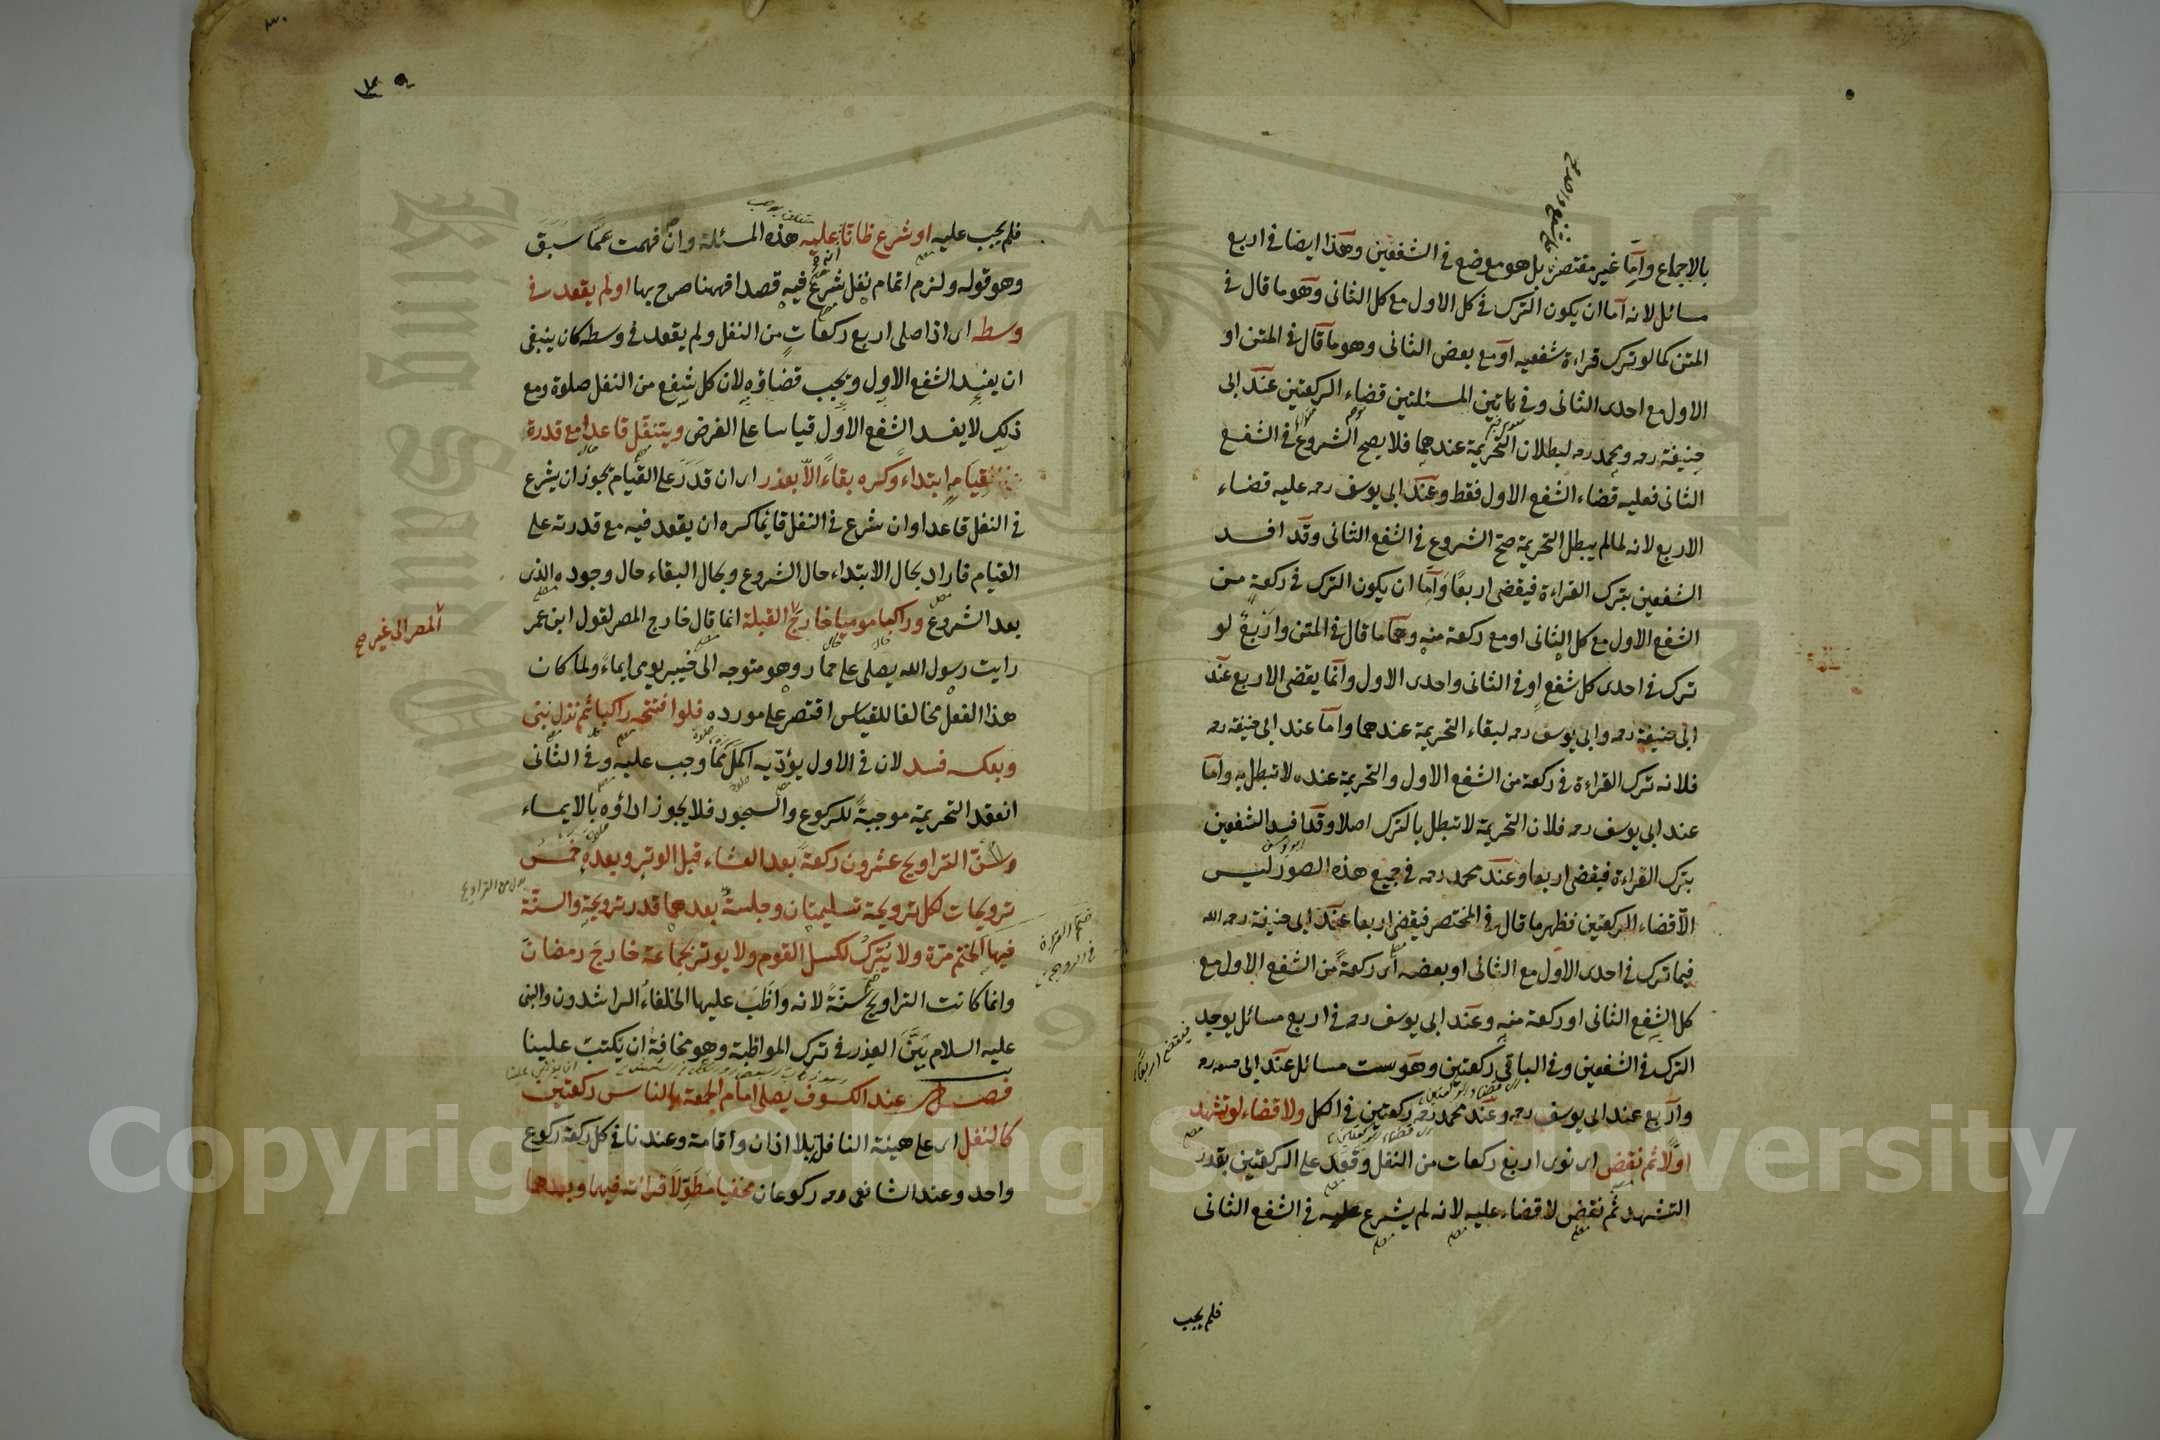 بالاجماع واما غير مقتصر بل هو موضع في الشفعين وهذا ايضا في اربع
مسائل لانه اما ان يكون الترك في كل الاول مع كل الثاني وهو ما قال في
المتن كما لو ترك قراءة شفعيه او مع بعض الثاني وهو ما قال في المتن او
الاول مع احدى الثاني وفي هاتين المسئلتين قضاء الركعتين عند ابى
حنيفة رحه ومحمد رحه لبطلان التحريمة عندهما فلا يصح الشروع في الشفع
الثاني فعليه قضاء الشفع الاول فقط وعند ابي يوسف رحه عليه قضاء
الاربع لانه لما لم يبطل التحريمة صح الشروع في الشفع الثاني وقد افسد
الشفعين بترك القراءة فيقضي اربعا واما ان يكون الترك في ركعة من
الشفع الاول مع كل الثاني او مع ركعة منه وهما ما قال في المتن واربع لو
ترك في احدى كل شفع او في الثاني واحدى الاول وانما يقضى الاربع عند
ابى حنيفة رحه وابى يوسف رحه لبقاء التحريمة عندهما واما عند ابى حنيفة رحه
فلانه ترك القراءة في ركعة من الشفع الاول والتحريمة عنده لا تبطل به واما
عند ابى يوسف رحه فلان التحريمة لا تبطل بالترك اصلا وقد افسد الشفعين
بترك القراءة فيقضى اربعا وعند محمد رحه في جميع هذه الصور ليس
الا قضاء الركعتين فظهر ما قال في المختصر فيقضى اربعا عند ابى حنيفة رحه الله
فيما ترك في احدى الاول مع الثاني او بعضه اى ركعة من الشفع الاول مع
كل الشفع الثاني او ركعة منه وعند ابى يوسف رحه في اربع مسائل يوجد
الترك في الشفعين وفي الباقي ركعتين وهو ست مسائل عند ابى حنيفه رحه
واربع عند ابى يوسف رحه وعند محمد رحه ركعتين في الكل ولا قضاء لو تشهد
اولا ثم نقض اى نوى اربع ركعات من النفل وقعد على الركعتين بقدر
التشهد ثم نقض لا قضاء عليه لانه لم يشرع عليه في الشفع الثاني
فيقضى اربعا
فلم يجب
فلم يجب عليه او شرع ظانا عليه هذه المسئلة وان فهمت عما سبق
وهو قوله ولزم اتمام نفل شرع فيه قصدا فههنا صرح بها او لم يقعد في
وسطه اى اذا صلى اربع ركعات من النفل ولم يقعد في وسطه كان ينبغى
ان يفسد الشفع الاول ويجب قضاؤه لان كل شفع من النفل صلوة ومع
ذلك لا يفسد الشفع الاول قياسا على الفرض ويتنفل قاعدا مع قدرة
قيامه ابتداء وكره بقاء الا بعذر اى ان قدر على القيام يجوز ان يشرع
في النفل قاعدا وان شرع في النفل قائما كره ان يقعد فيه مع قدرته على
القيام فاراد بحال الابتداء حال الشروع وبحال البقاء حال وجوده الذى
بعد الشروع وراكبا موميا خارج القبلة انما قال خارج المصر لقول ابن عمر
المصر الى غير صح
رايت رسول الله يصلى على حمار وهو متوجه الى خيبر يومى ايماء ولما كان
هذا الفعل مخالفا للقياس اقتصر على مورده فلو افتتحه راكبا ثم نزل بنى
وبعكسه فسد لان في الاول يؤديه اكمل مما وجب عليه وفي الثاني
انعقد التحريمة موجبة للركوع والسجود فلا يجوز اداؤه بالايماء
وسن التراويح عشرون ركعة بعد العشاء قبل الوتر وبعده خمس
ترويحات لكل ترويحة تسليمتان وجلسة بعدهما قدر ترويحة والسنة
فيها الختم مرة ولا يترك لكسل القوم ولا يوتر بجماعة خارج رمضان
وانما كانت التراويح سنة لانه واظب عليها الخلفاء الراشدون والنبى
عليه السلام بين العذر في ترك المواظبة وهو مخافة ان يكتب علينا
فصل عند الكسوف يصلى امام الجمعة بالناس ركعتين
كالنفل اى على هيئة النافل بلا اذان واقامة وعندنا في كل ركعة ركوع
واحد وعند الشافعى رحه ركوعان مخفيا مطولا قراءته فيهما وبعدهما
Copyright © King Saud University